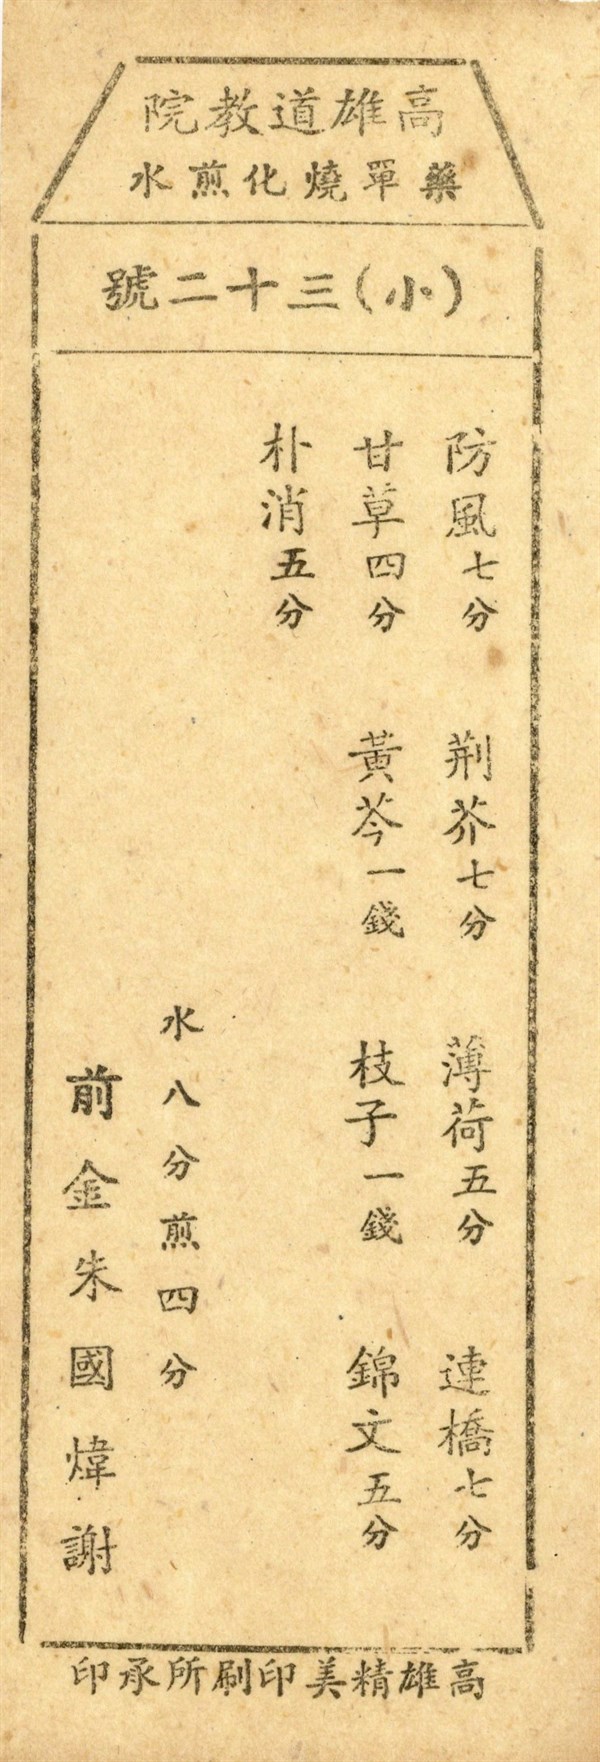 高雄道教院
藥單燒化煎水
（小）三十二號
防風七分 荆芥七分 薄荷五分 連橋七分
甘草四分 黃芩一錢 枝子一錢 錦文五分
朴消五分
水八分煎四分
前金朱國煒謝
高雄精美印刷所承印